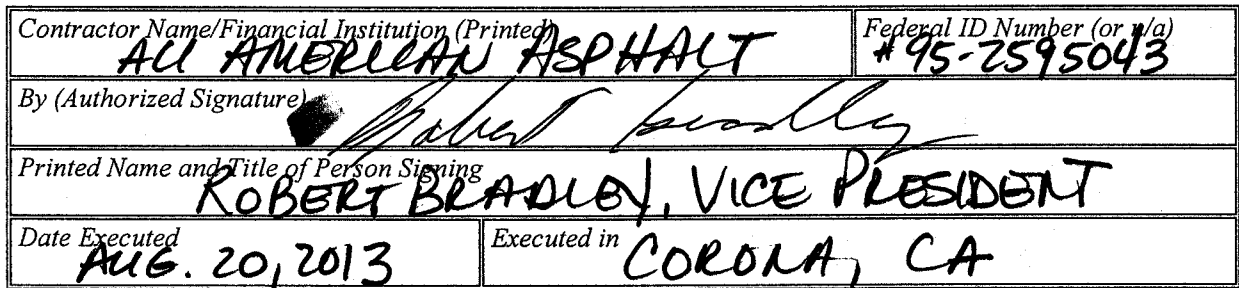 Contractor Name/Financial Institution (Printed)
ALL AMERICAN ASPHALT
Federal ID Number (or n/a)
#95-2595043
By (Authorized Signature)
Robert Bradley
Printed Name and Title of Person Signing
ROBERT BRADLEY, VICE PRESIDENT
Date Executed
AUG. 20, 2013
Executed in
CORONA, CA